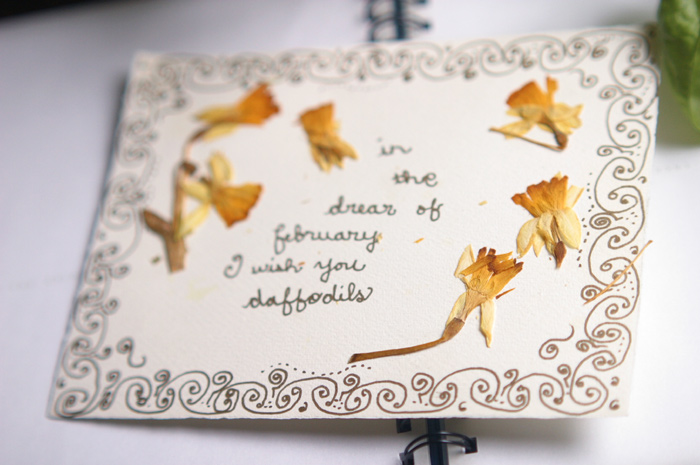 in
the
drear of
february
I wish you
daffodils